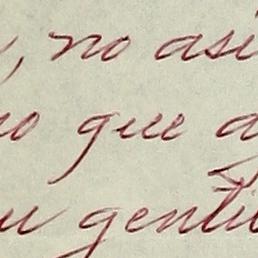 , no asi
no que a
su gentil